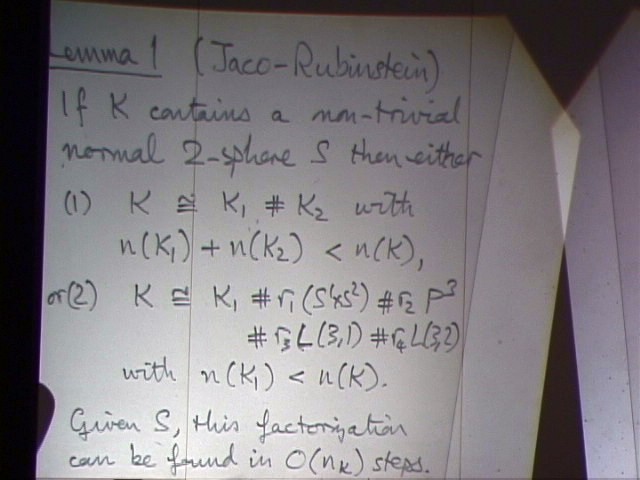 Lemma 1 (Jaco-Rubinstein)
If K contains a non-trivial
normal 2-sphere S then either
(1) K ≅ K₁ # K₂ with
n(K₁) + n(K₂) < n(K),
or (2) K ≅ K₁ # r₁(S¹×S²) # r₂ P³
# r₃ L(3,1) # r₄ L(3,2)
with n(K₁) < n(K).
Given S, this factorization
can be found in O(n_K) steps.